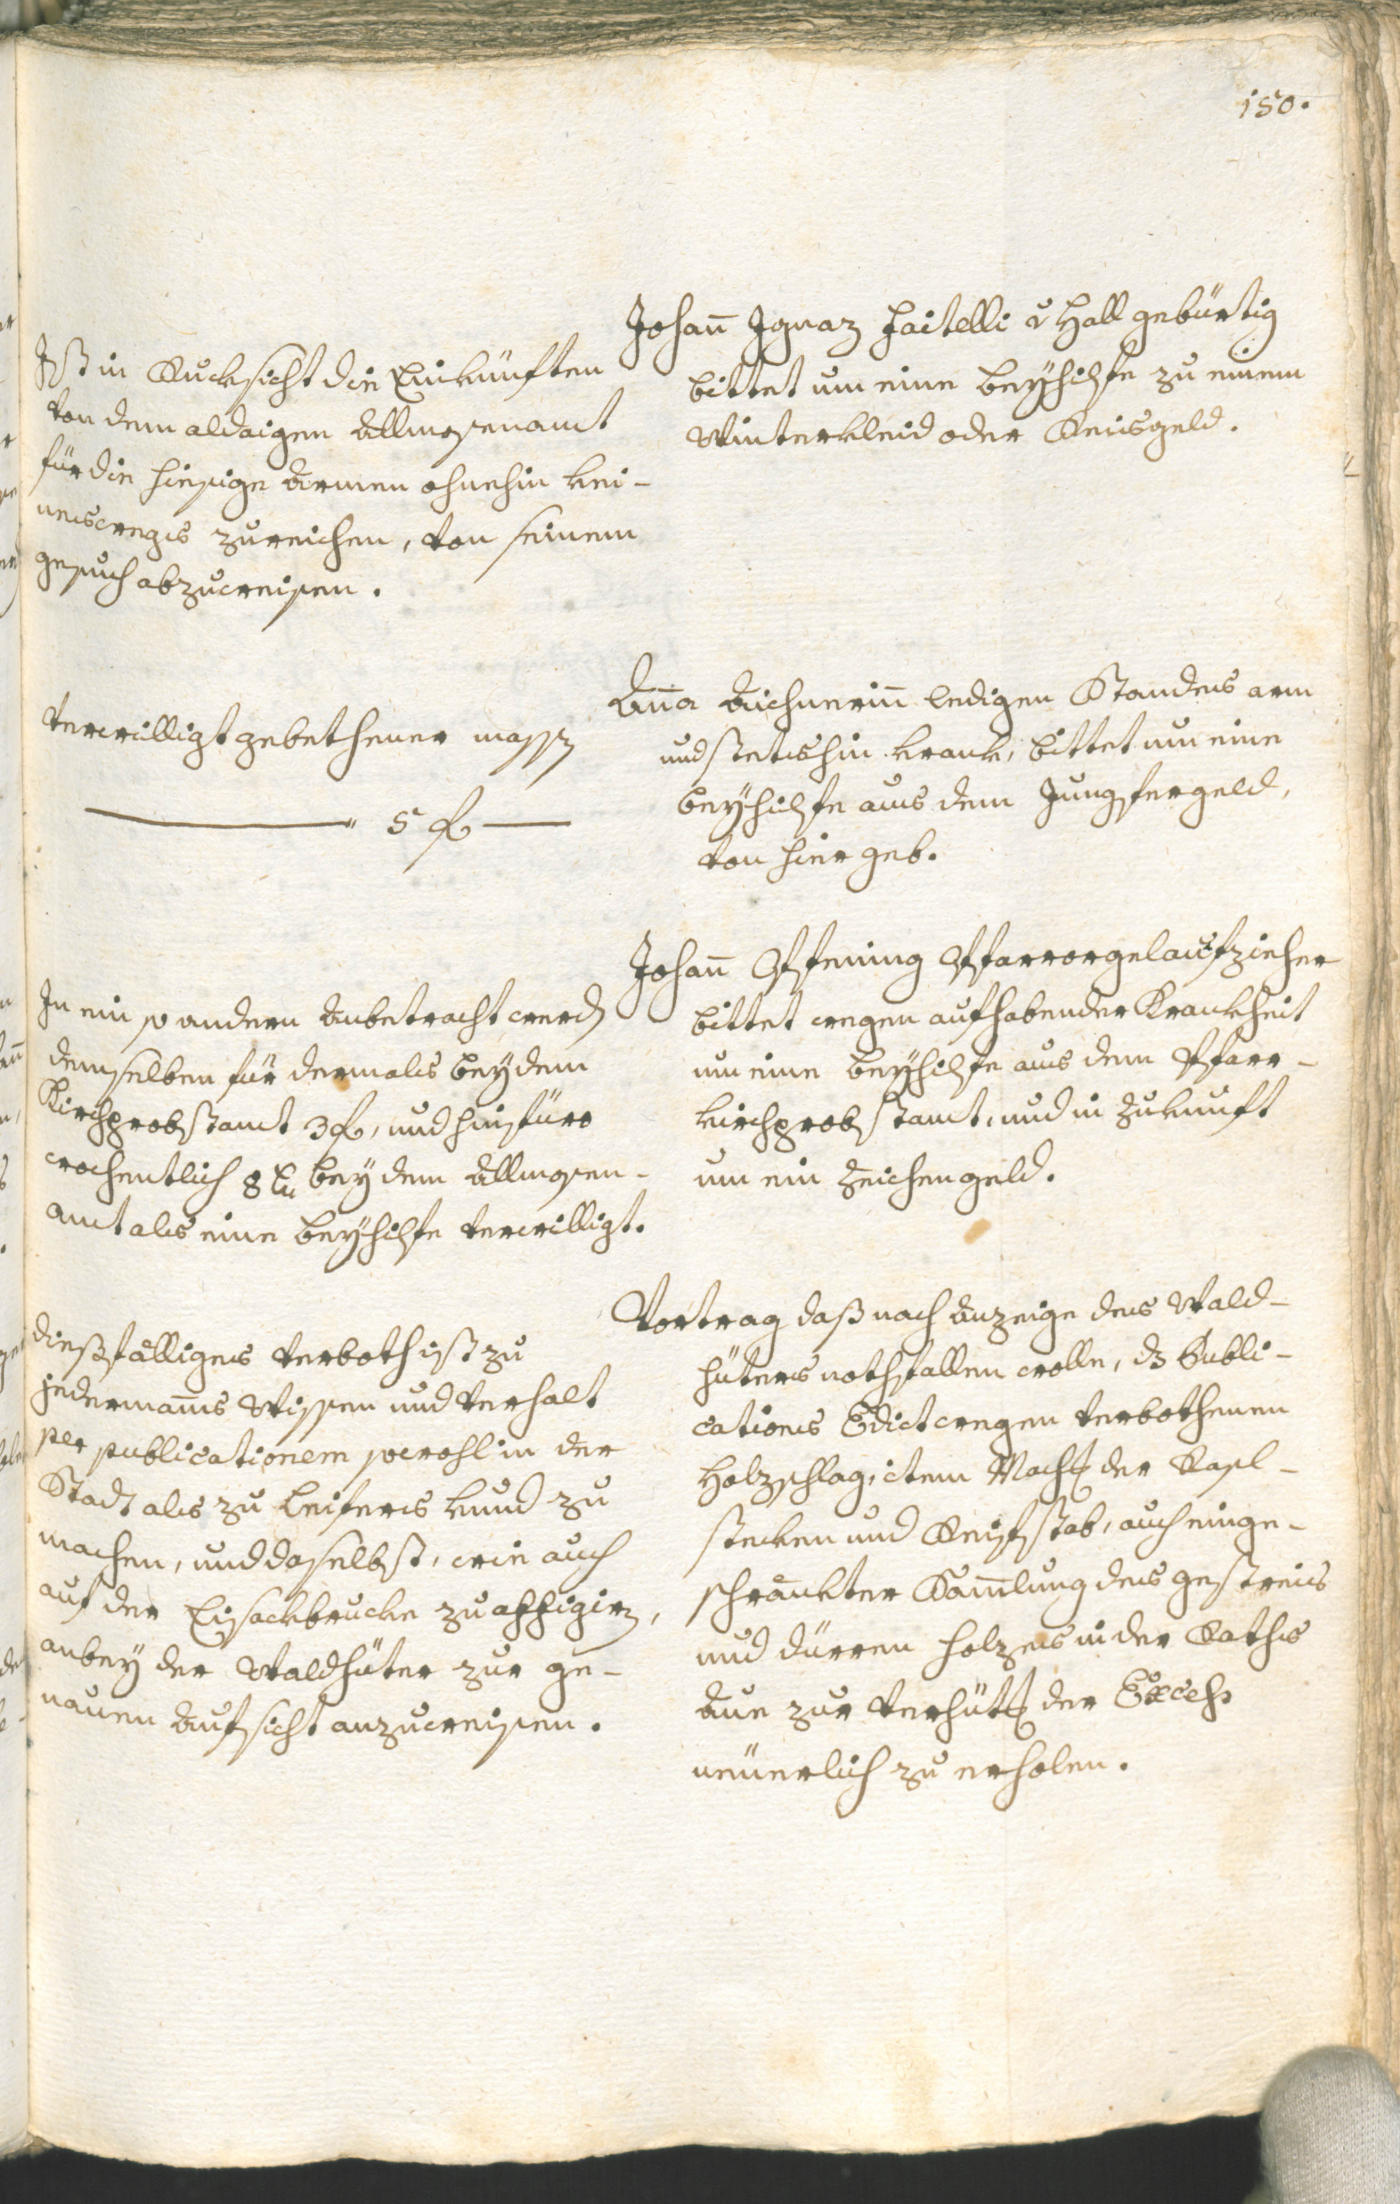 150.
Johan̅ Ignaz Faitelli v Hall gebürtig
bittet um eine Beÿhilfe zu einem
Winterkleid oder Reisgeld.
Ist in Rucksicht die Einkünften
von dem aldaigen Allmosenamt
für die hiesige Armen ohnehin kei-
neswegs zureichen, von seinem
gesuch abzuweisen.
An̅a Aichnerin̅ ledigen Standes arm
und stetshin krank, bittet um eine
Beÿhilfe aus dem Jungfergeld,
von hier geb.
Verwilligt gebethener massen
5 f
Johan̅ Pfening Pfarrorgelaufzieher
bittet wegen aufhabender Krankheit
um eine Beÿhilfe aus dem Pfarr-
kirchprobstamt, und in Zukunft
um ein Zeichengeld.
In ein so andern Anbetracht werd
demselben für dermals beÿ dem
Kirchprobstamt 3 f, und hinfüro
wochentlich 8 xr beÿ dem Allmosen-
amt als eine Beÿhilfe verwilligt.
Vortrag daß nach Anzeige des Wald-
hüters nothfallen wolle, dz Publi-
cations Edict wegen verbothenen
Holzschlag, item Mach der Rafl-
stecken und Reifstab, auch einge-
schränkter Sam̅lung des gestreis
und dürren holzes in der Raths
Aue zur Verhütt der Excess
neuerlich zu erholen.
dießfälliges Verboth ist zu
jederman̅s Wissen und Verhalt
per publicationem sowohl in der
Stadt als zu Leifers kund zu
machen, und daselbst, wie auch
auf der Eisackbrucke zu affigirn,
anbeÿ der Waldhüter zur ge-
nauen Aufsicht anzuweisen.